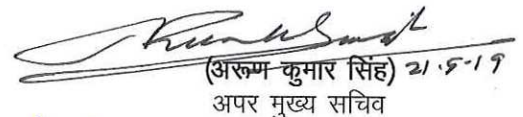 (अरूण कुमार सिंह) 21.5.19
अपर मुख्य सचिव